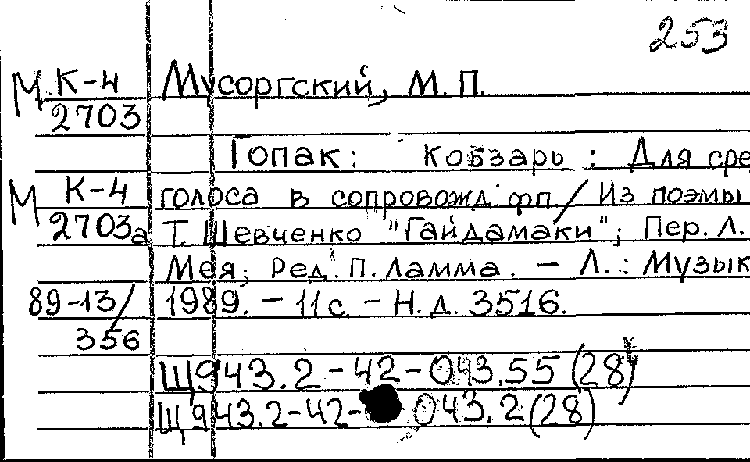 253
М К-4 Мусоргский, М. П.
2703
Гопак: Кобзарь: Для сре
М К-4 голоса в сопровожд. фп / Из поэмы
2703а Т. Шевченко "Гайдамаки"; Пер. Л.
Мея; Ред. П. Ламма. — Л.: Музык
89-13/ 1989. - 11 с. - Н. д. 3516.
356
Щ943.2-42-043.55(28)
Щ943.2-42- 043.2(28)